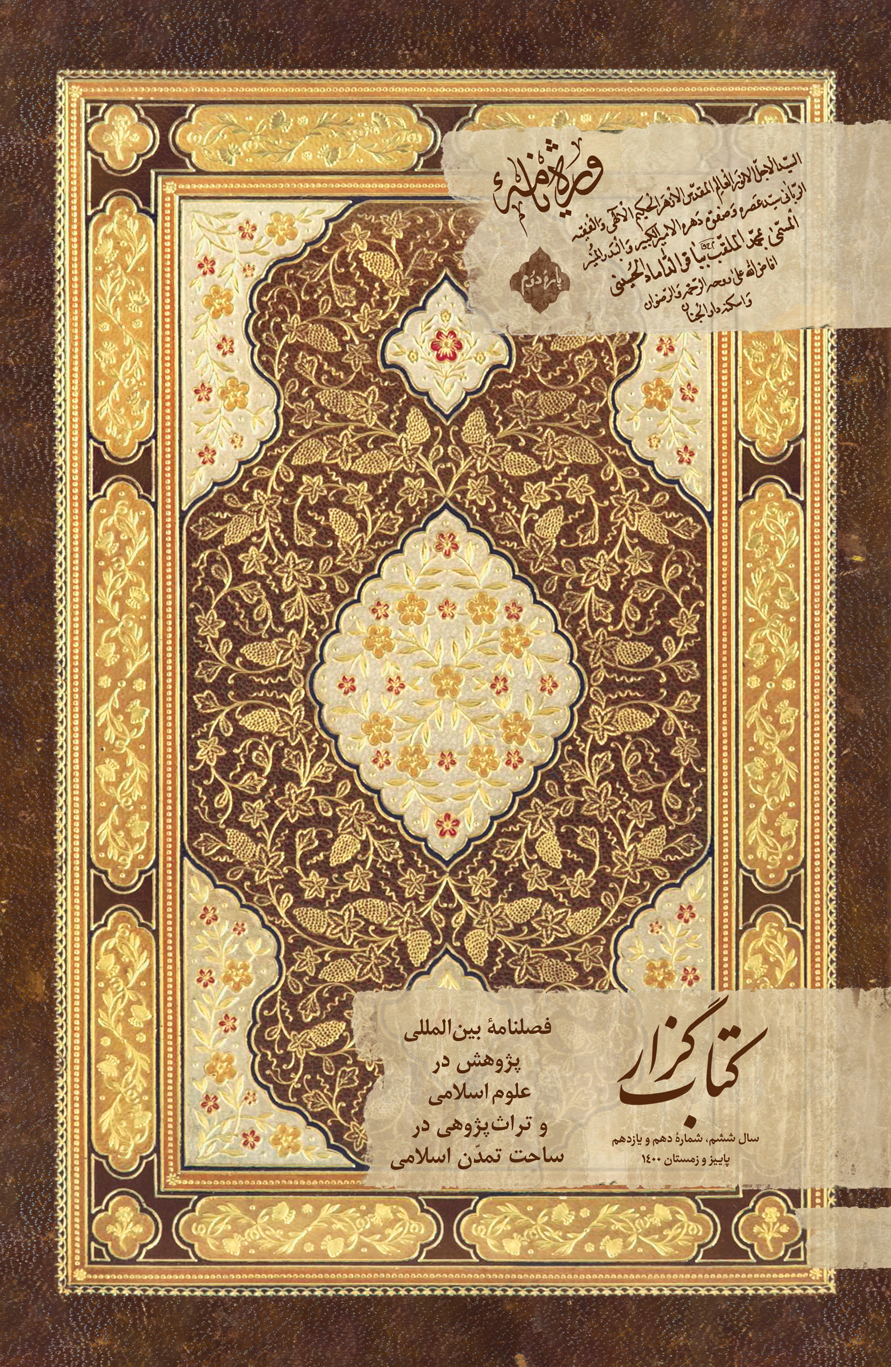 ویژه‌نامهٔ
پارهٔ دوم
السّید الاجلّ الانور العالم المقدّس الازهر الحکیم الالٓهی والفقیه
الربّانی سیّد عصره وصفوة دهره الامیر الکبیر والبدر المنیر
المسمّی بمحمّد الملقّب بباقر الداماد الحسینی
افاض الله علی روحه الرحمة والرضوان
واسکنه دار الجنان
کتاب گزار
سال ششم، شمارهٔ دهم و یازدهم
پاییز و زمستان ۱۴۰۰
فصلنامهٔ بین‌المللی
پژوهش در
علوم اسلامی
و تراث‌پژوهی در
ساحت تمدّن اسلامی